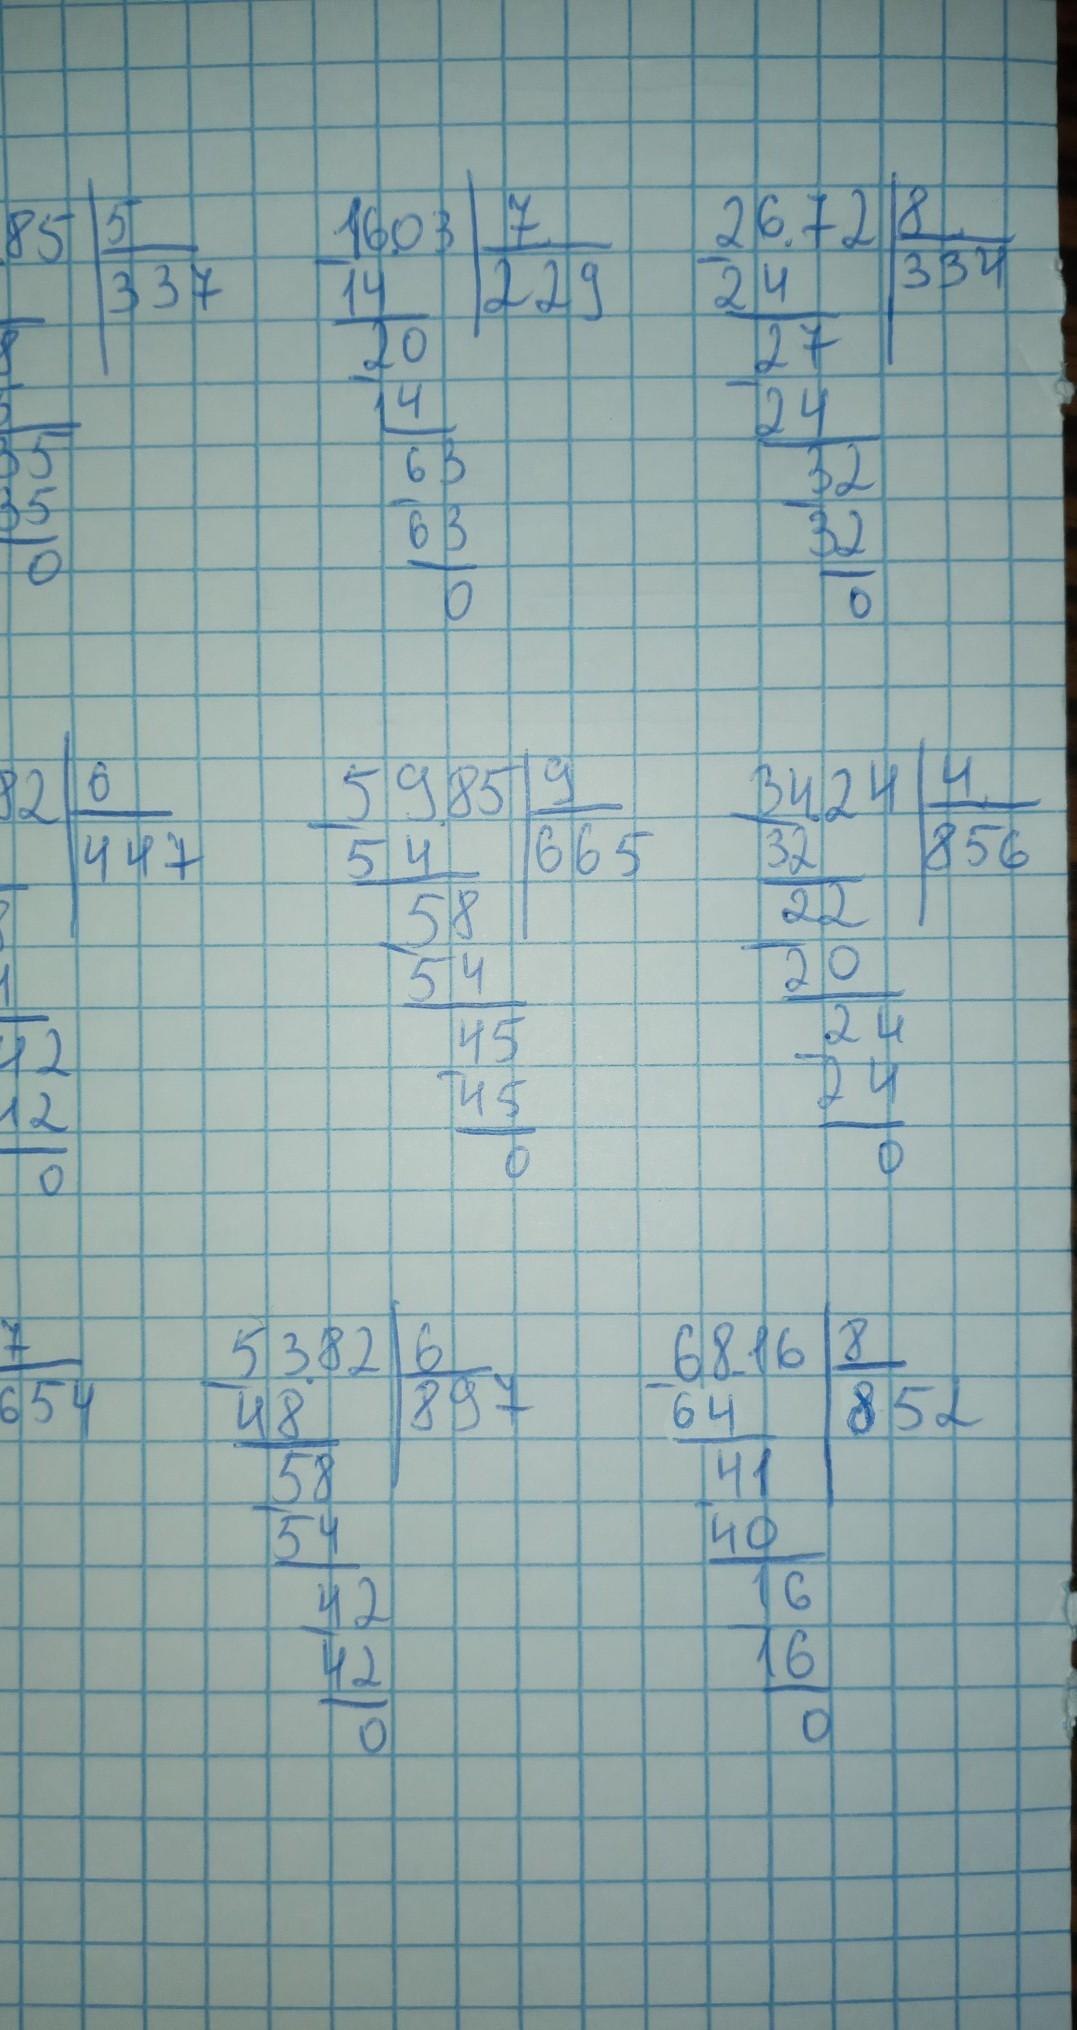 85 5 1603 7 2672 8
337 14 229 24 334
20 27
14 24
35 63 32
35 63 32
0 0 0
82 6 5985 9 3424 4
447 54 665 32 856
58 22
54 20
42 45 24
12 45 24
0 0 0
7 5382 6 6816 8
654 48 897 64 852
58 41
54 40
42 16
42 16
0 0